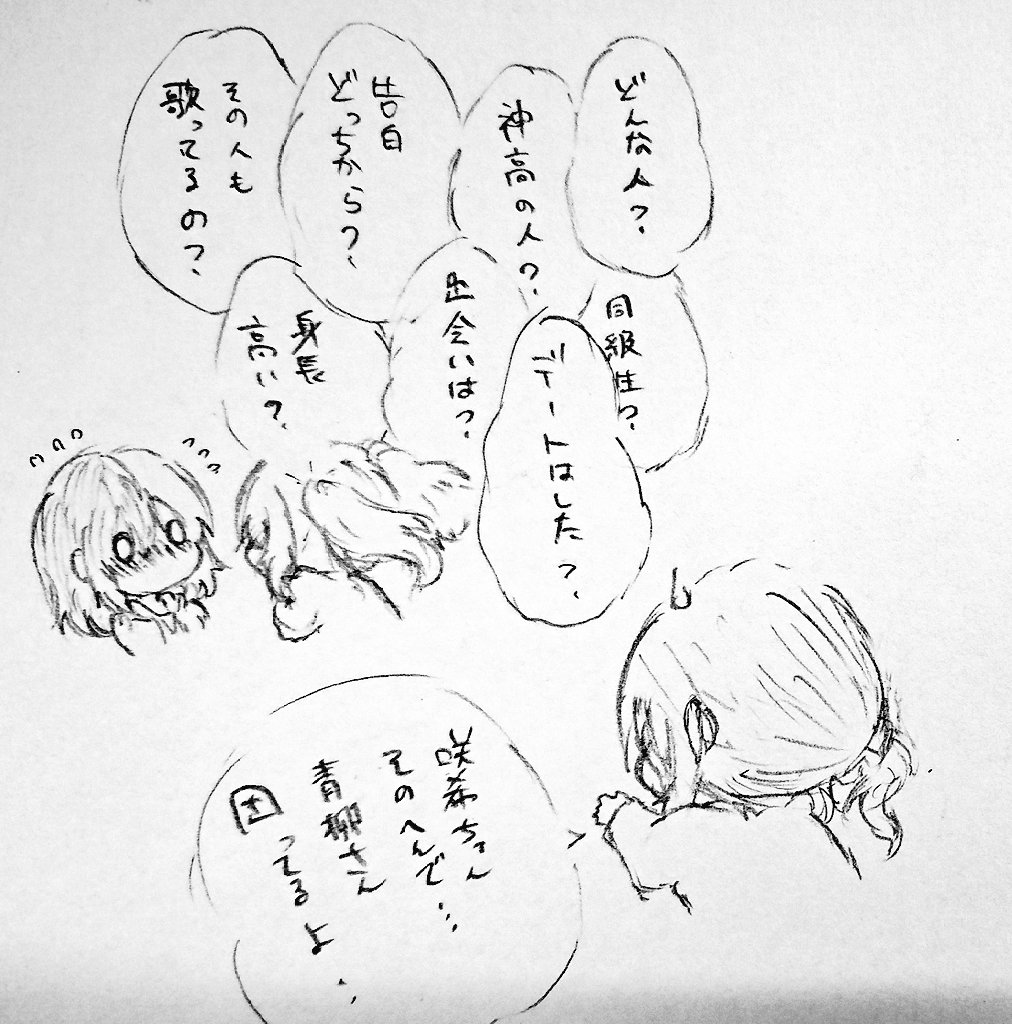 どんな人?
神高の人?
告白
どっちから?
その人も
歌ってるの?
同級生?
デートはした?
出会いは?
身長
高い?
咲希ちゃん
そのへんで…
青柳さん
困ってるよ…